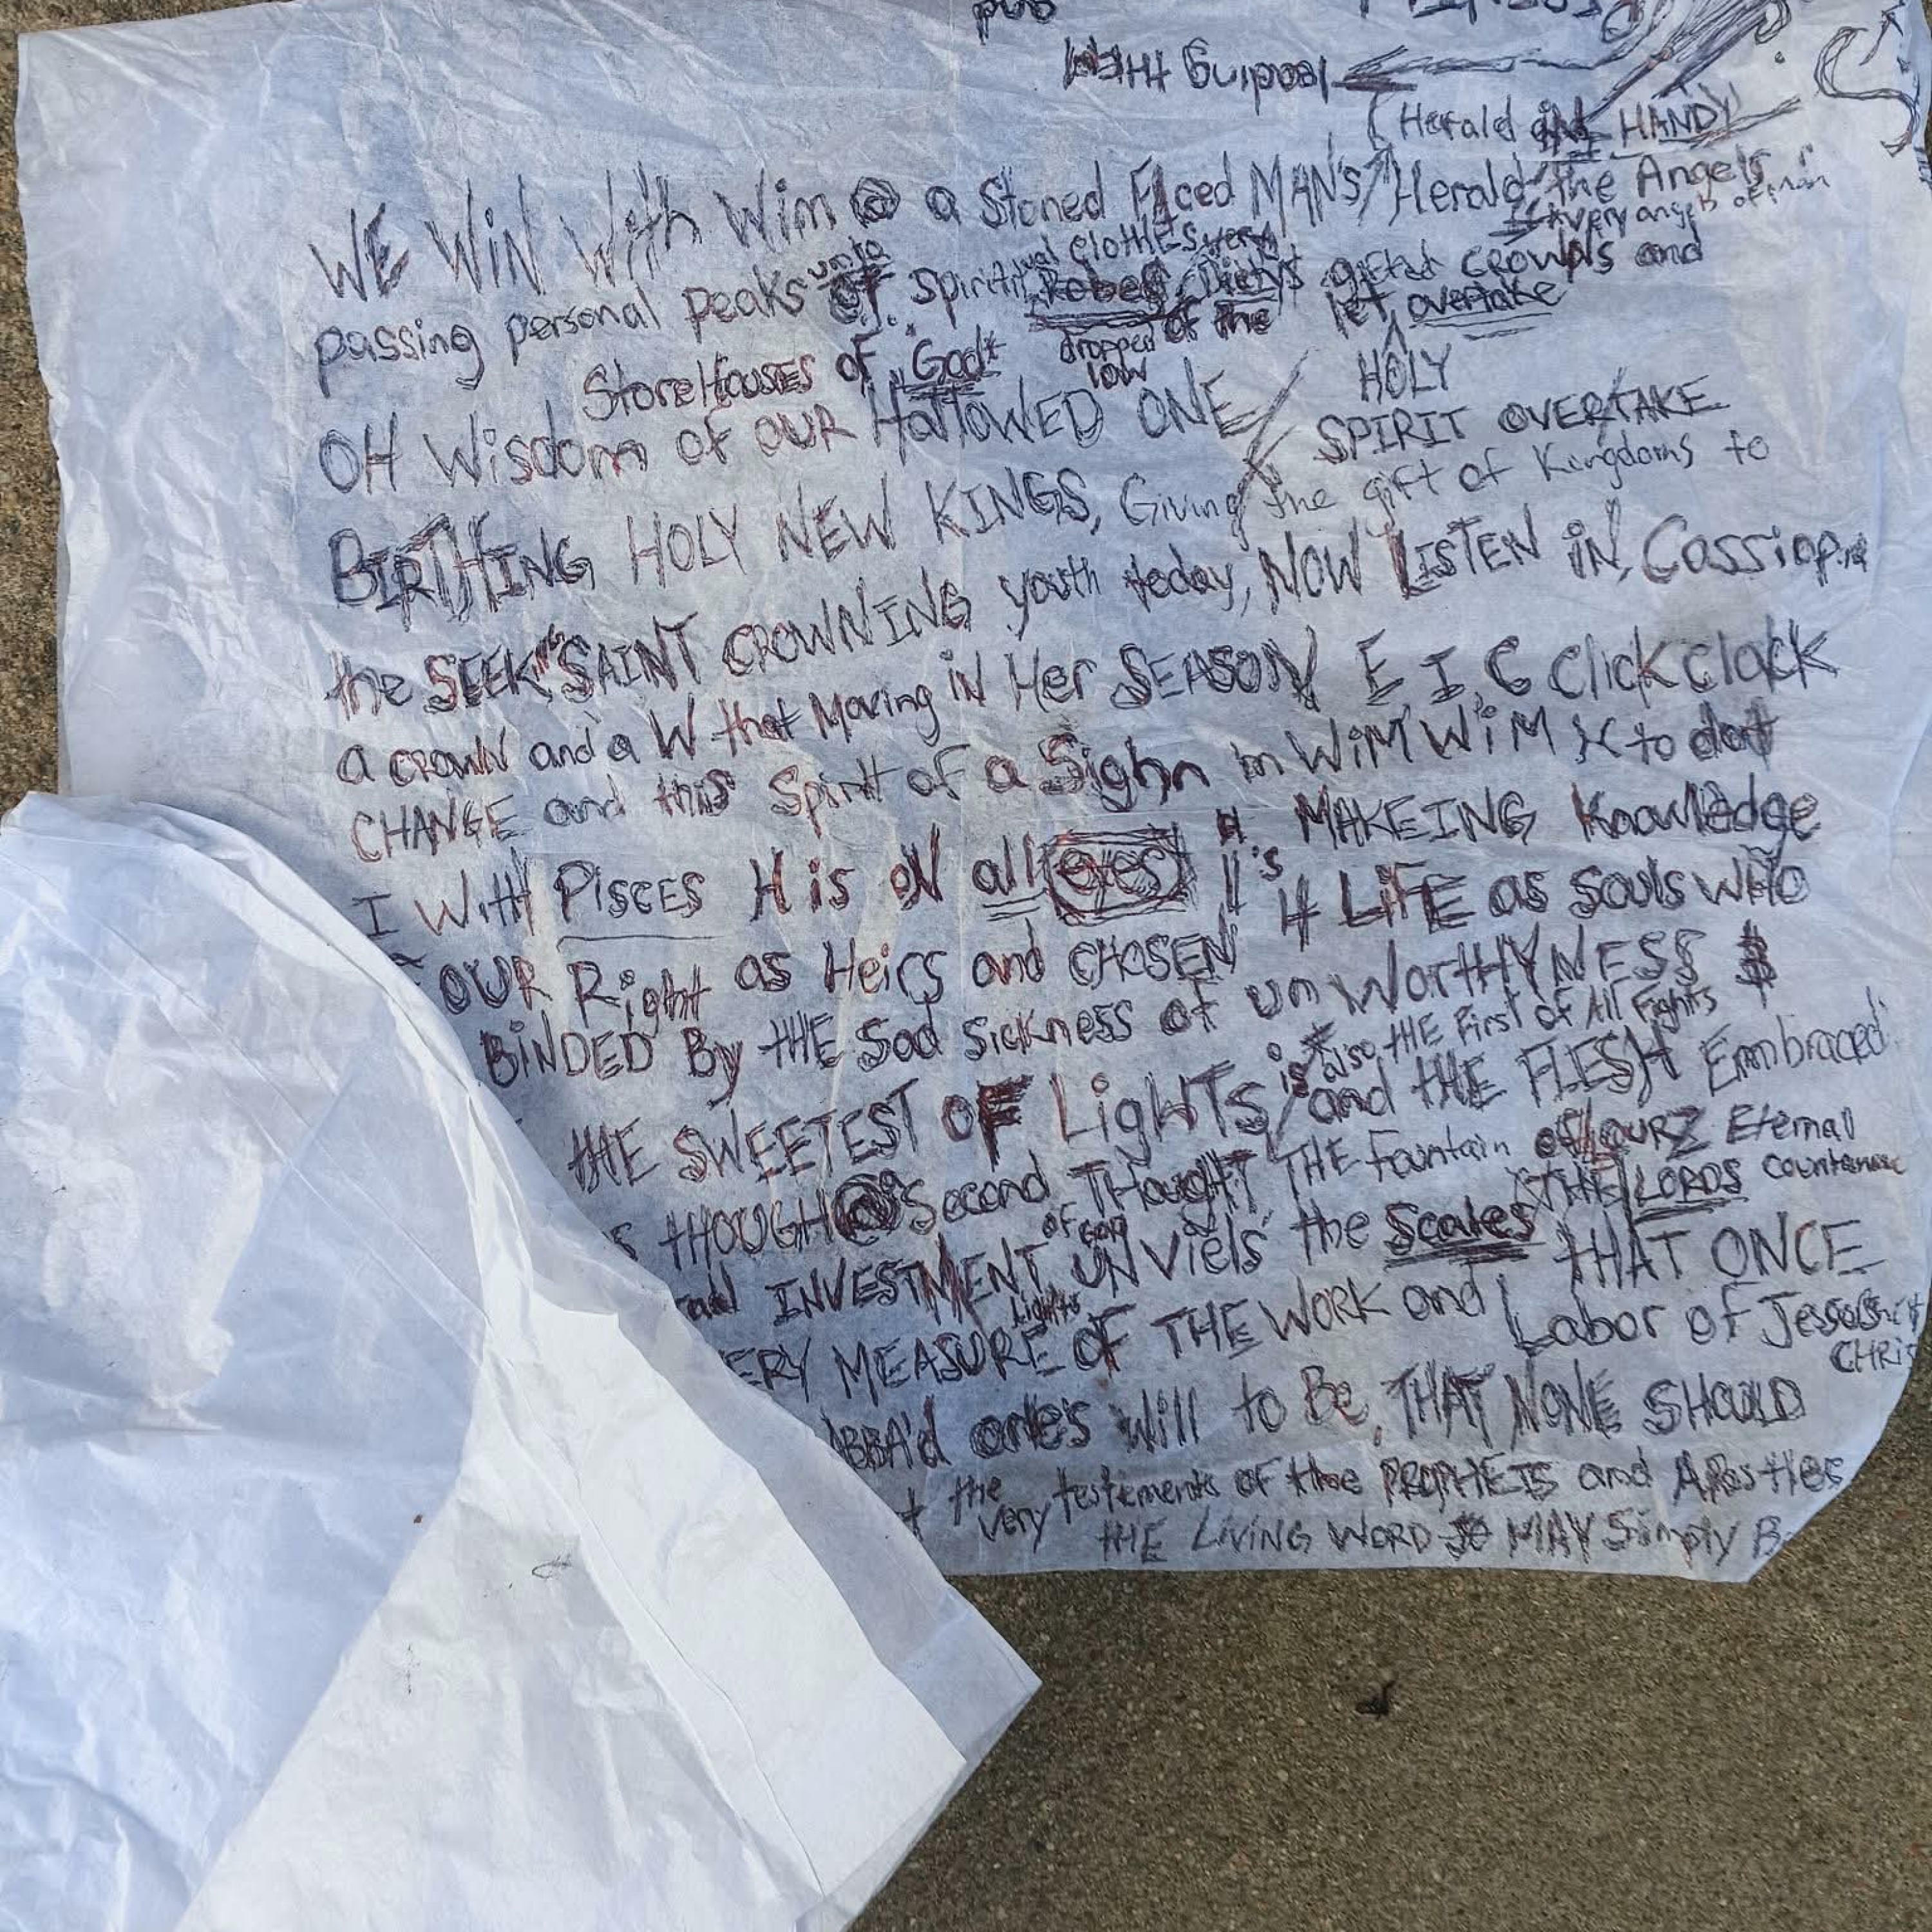 pub
leading THEM
(Herald IN HANDY)
WE WIN With Wim @ a Stoned FAced MAN's / Herald the Angels
very angels of man
passing personal peaks unto Spiritual clothes very gifted CROWNS and
StoreHouses of God* dropped low of the let overtake
HOLY
OH Wisdom of OUR HALLOWED ONE / SPIRIT OVERTAKE
BIRTHING HOLY NEW KINGS, Giving the gift of Kingdoms to
the SEEK SAINT CROWNING youth today, NOW LISTEN iN, Cassiop
a CROWN and a W that Moving iN Her SEASON E, I, C Click Clack
CHANGE and this Spirit of a Sighn in WiM WiM X to dot
I With PISCES H is ON all eyes it's MAKEING Knowledge
OUR Right as Heirs and CHOSEN 4 LiFE as souls WHO
BiNDED By tHE Sad Sickness of un WorTHYNESS $
tHE SWEETEST OF LigHTs, is also tHE First of All Fights and tHE FLESH Embraced
tHOUGH @ Second THougHT THE Fountain of ourz Eternal
INVESTMENT of GOD UNViels the Scales THE LORDS countenance
ERY MEASURE Lights OF THE WORK and THAT ONCE
Labor of Jesus
CHRIS
ABBA'd one's Will to Be, THAT NONE SHOULD
the very testiments of the PROPHETS and APostles
tHE LiViNG WORD MAY Simply B